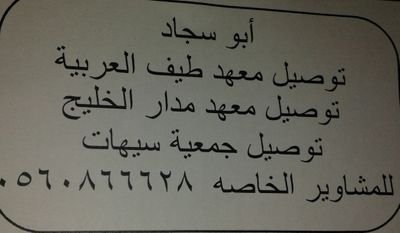 أبو سجاد
توصيل معهد طيف العربية
توصيل معهد مدار الخليج
توصيل جمعية سيهات
للمشاوير الخاصه ٠٥٦٠٨٦٦٦٢٨